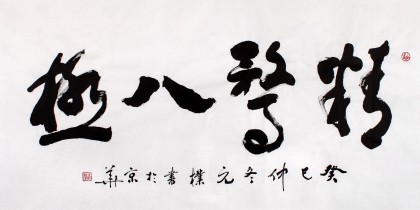 精騖八極
癸巳仲冬元樸書於京華